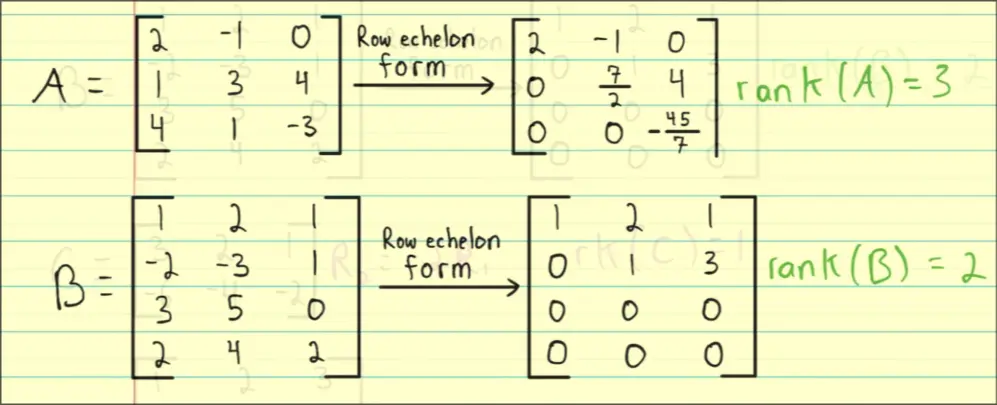 A = [2 -1 0; 1 3 4; 4 1 -3] Row echelon form → [2 -1 0; 0 7/2 4; 0 0 -45/7] rank(A) = 3
B = [1 2 1; -2 -3 1; 3 5 0; 2 4 2] Row echelon form → [1 2 1; 0 1 3; 0 0 0; 0 0 0] rank(B) = 2